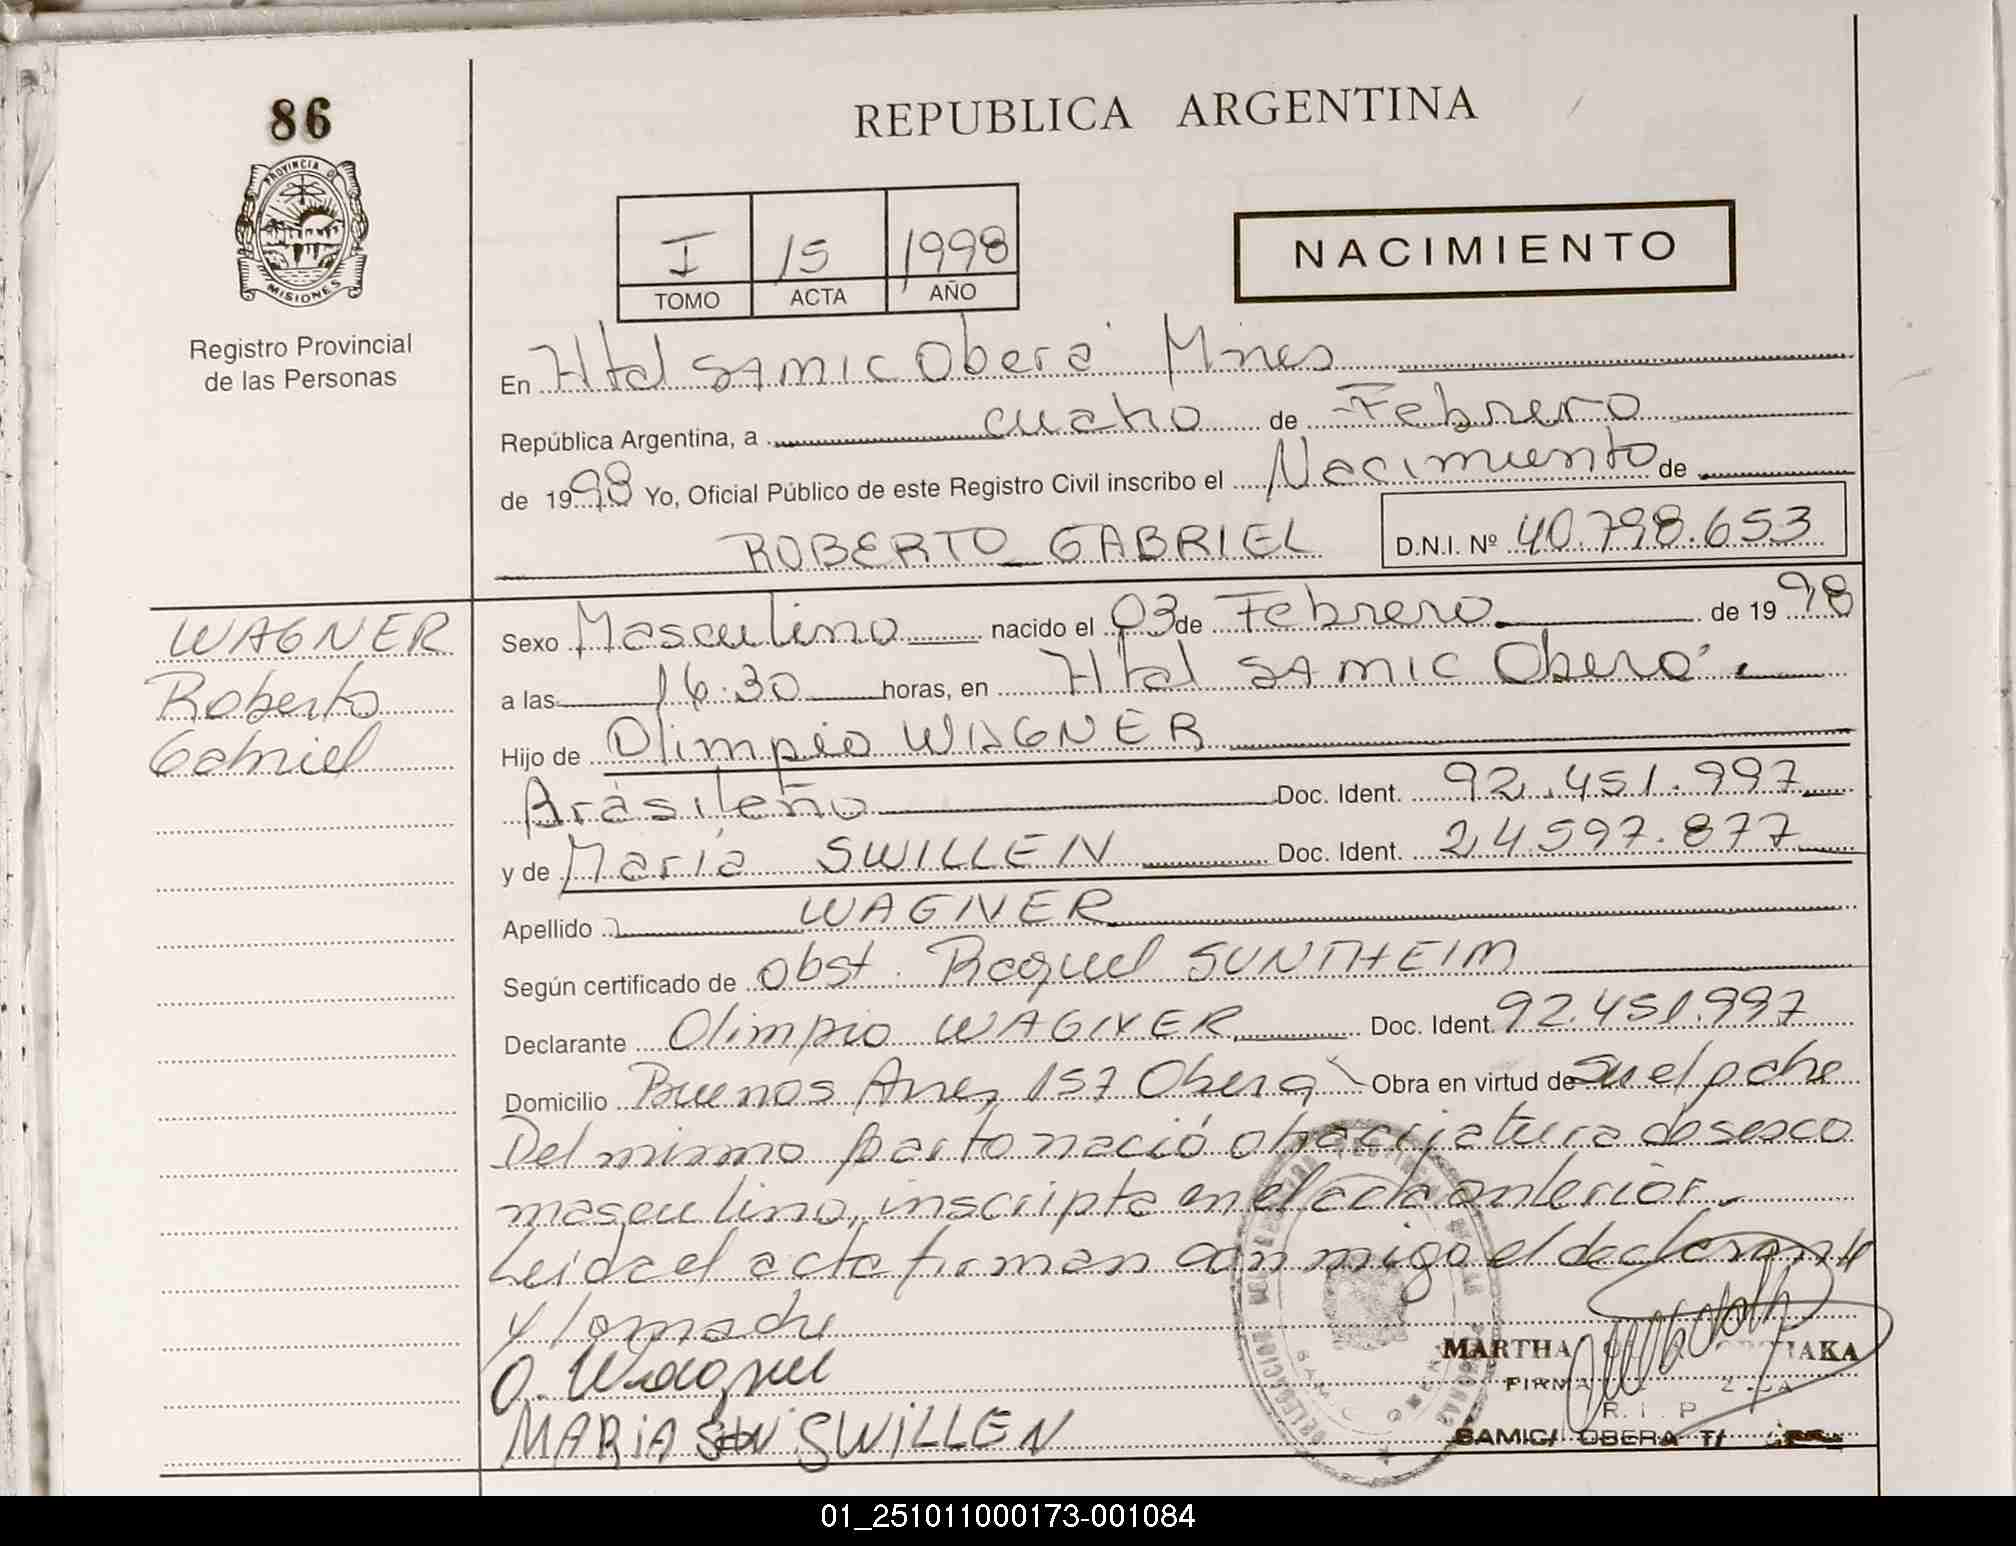 86
REPUBLICA ARGENTINA
PROVINCIA D
MISIONES
Registro Provincial
de las Personas
I 15 1998
TOMO ACTA AÑO
NACIMIENTO
En Htal SAMIC Oberá Mnes
República Argentina, a cuatro de Febrero
de 1998 Yo, Oficial Público de este Registro Civil inscribo el Nacimiento de
ROBERTO GABRIEL D.N.I. Nº 40.798.653
WAGNER
Roberto
Gabriel
Sexo Masculino nacido el 03 de Febrero de 1998
a las 16:30 horas, en Htal SAMIC Oberá
Hijo de Olimpio WAGNER
Brasileño Doc. Ident. 92.451.997
y de María SWILLEN Doc. Ident. 24597.877
Apellido WAGNER
Según certificado de obst. Raquel SUNTHEIM
Declarante Olimpio WAGNER Doc. Ident. 92.451.997
Domicilio Buenos Aires 157 Oberá Obra en virtud de su el padre
Del mismo parto nació otra criatura do sexo
masculino, inscripta en el acta anterior.
Leida el acta firman conmigo el declarante
y la madre
O. Wagner
MARIA SWILLEN
MARTHA
FIRMA
R. I. P
SAMIC/ OBERA
01_251011000173-001084